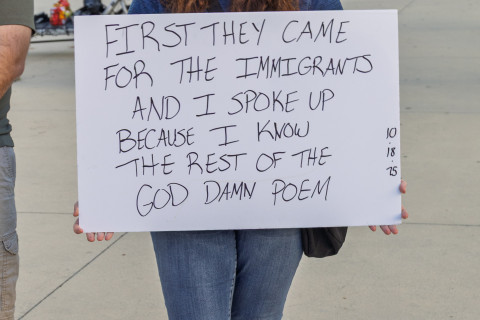 FIRST THEY CAME
FOR THE IMMIGRANTS
AND I SPOKE UP
BECAUSE I KNOW
THE REST OF THE
GOD DAMN POEM
10
·
18
·
25